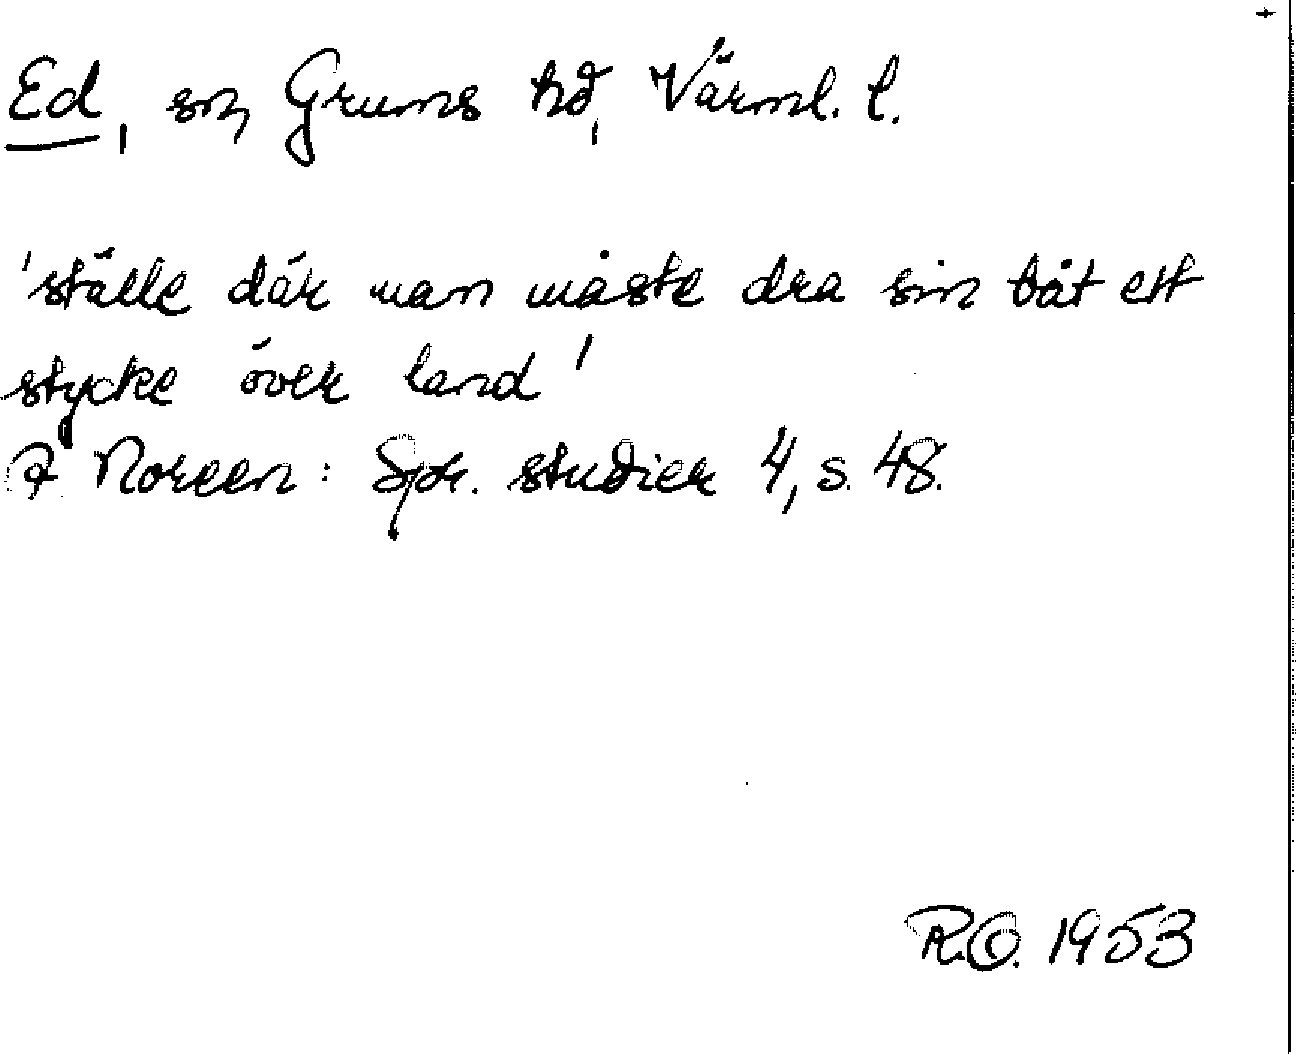 Ed, sn, Grums hd, Värml. l.
'ställe där man måste dra sin båt ett
stycke över land'
A Noreen: Spr. studier 4, s. 48.
R.O. 1953